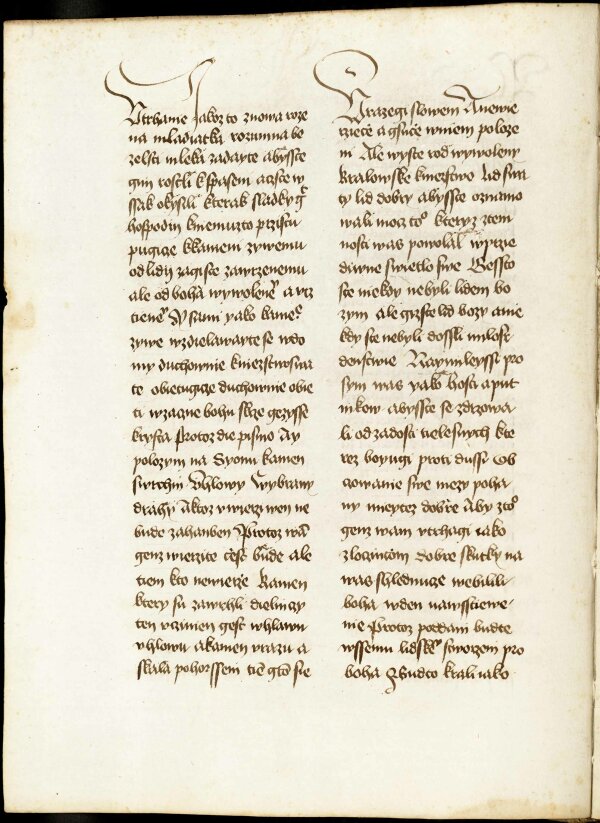 Vtrhanie jakoz to znowa roze
na mladiatka rozumna be
ze lsti mleka zadayte abysste
gim rostli k spaseni acisce w
ssak okusili kterak sladky gt
hospodin kniemuzto przistu
pugicze kkameni zywemu
od lidij zagiste zawrzenemu
ale od boha wywolene a vcz
tiene Y sami yako kame
zywe wzdielawayte se wdo
my duchownie kniezstwo swa
te obietugicze duchownie obie
ti wzacne bohu skrze gezysse
krysta Protoz die pismo Ay
polozym na Syonu kamen
swrchni Vhlowy Wybrany
drahy Aktoz vwierzi wen ne
bude zahanben Protoz wa
genz wierzite cest bude ale
tiem kto newierze Kamen
ktery su zawrhli dielniczy
ten vczinien gest w hlawu
vhlowu akamen vrazu a
skala pohorssem tiem gto sie
Vrazegi slowem Anewie
rziece a gsuce wniem poloze
ni Ale wy ste rod wywoleny
kralowske kniezstwo lid swa
ty lid dobyty abysste oznamo
wali mocz to kteryz z tem
nosti was powolal wprze
diwne swietlo swe Gessto
ste niekdy nebyli lidem bo
zym ale gizste lid bozy a nie
kdy ste nebyli dossli milosr
denstwie Naymileyssi pro
sym was yako hosti a put
nikow abysste se zdrzowa
li od zadosti tielesnych kte
rez boyugi proti dussi Ob
cowanie swe mezy poha
ny meyte dobre Aby z to
genz wam vtrhagi jako
zloczincom dobre skutky na
was shledmicze webelili
boha w den nawsstiewe
nie Protoz poddani budte
wssemu lidske stworzeni pro
boha Budto krali jako